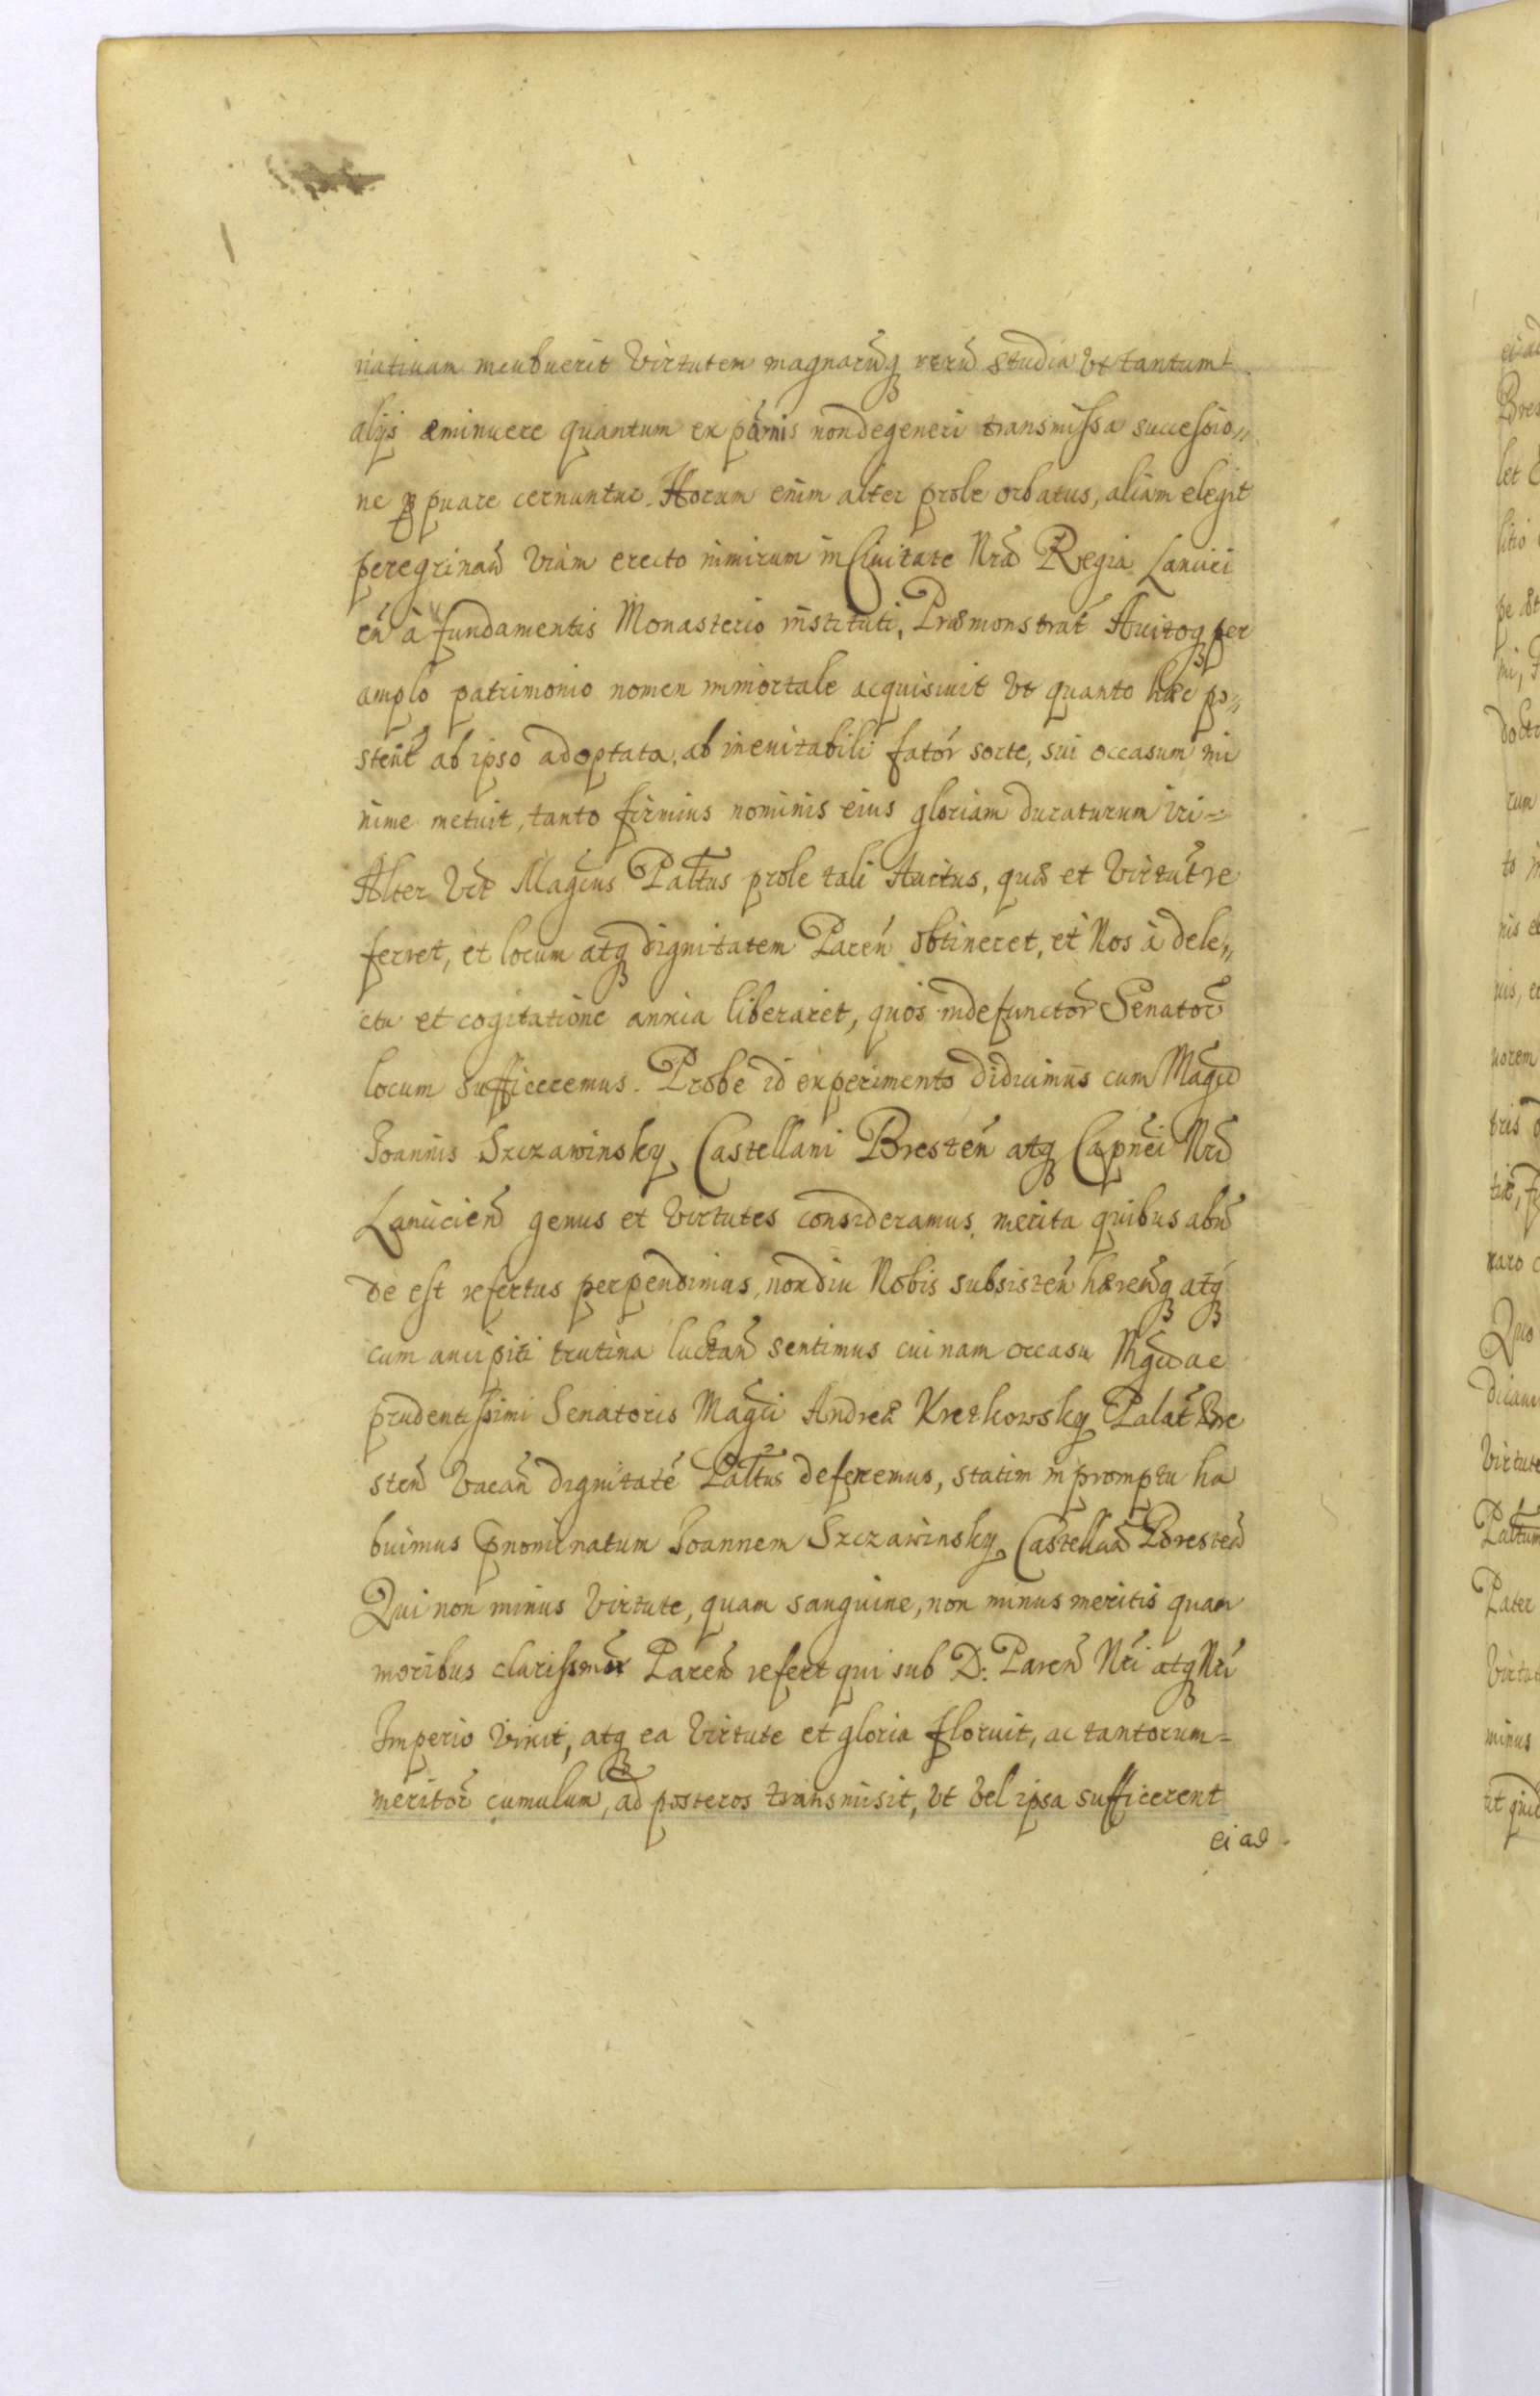 nativam incubuerit Virtutem magnarūq rerū studia Vt tantum
alijs eminuere quantum ex pārnis non degeneri transmissa successio„
ne ppuare cernuntur. Horum enim alter prole orbatus, aliam elegit
peregrinań Viam erecto nimirum in Ciuitate Nrā Regia Lancici
eń à fundamentis Monasterio instituti, Præmonstrat̃ Auitoq per
amplo patrimonio nomen immortale acquisiuit Vt quanto hæc po„
sterit̃ ab ipso adoptata, ab ineuitabili fator̃ sorte, sui occasum mi
nime metuit, tanto firmius nominis eius gloriam duraturum iri=
Alter Vrõ Magcus Paltus prole tali Auctus, quæ et Virtut̃ re
ferret, et locum atq dignitatem Pareń obtineret, et Nos à dele„
ctu et cogitatione anxia liberaret, quos in defunctor̃ Senator̃
locum sufficeremus. Probe id experimento didicimus cum Magci
Joannis Szczawinsky, Castellani Bresteń atq Capnei Nri
Lancicień genus et Virtutes consideramus, merita quibus abū
de est refertus perpendimus, non diu Nobis subsisteń hæreńq atq
cum ancipiti trutina luctań sentimus cuinam occasu Mgci ac
prudentissimi Senatoris Magci Andreæ Kretkowsky Palat̃ Bre
steń Vacań dignitatẽ Paltus deferemus, statim in promptu ha
buimus pnominatum Joannem Szczawinsky, Castellań Bresteń
Qui non minus Virtute, quam sanguine, non minus meritis quam
moribus clarissimor̃ Pareń refert qui sub D: Pareń Nri atq Nri
Imperio Vixit, atq ea Virtute et gloria floruit, ac tantorum=
meritor̃ cumulum, ad posteros transmisit, Vt Vel ipsa sufficerent
ei ad